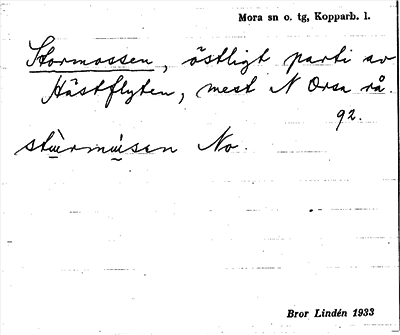 Mora sn o. tg, Kopparb. l.
Stormossen, östligt parti av
Hästflyten, mest N Orsa rå.
92.
No.
Bror Lindén 1933